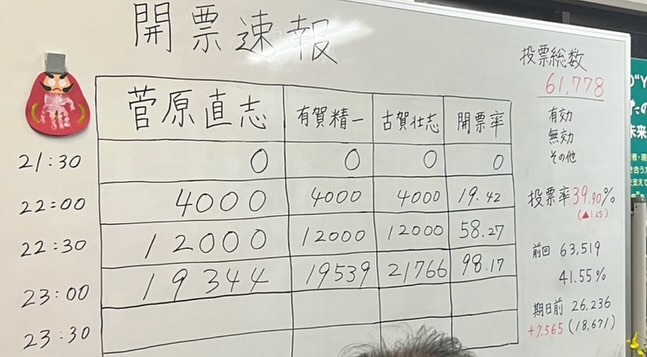 開票速報
菅原直志 有賀精一 古賀壮志 開票率
21:30 0 0 0 0
22:00 4000 4000 4000 19.42
22:30 12000 12000 12000 58.27
23:00 19344 19539 21766 98.17
23:30
投票総数
61,778
有効
無効
その他
投票率 39.90%
(▲1.65)
前回 63,519
41.55%
期日前 26,236
+7,565 (18,671)
未来